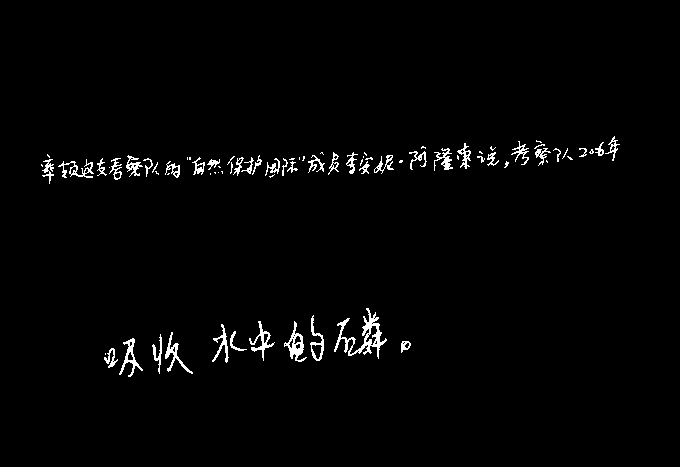 率领这支考察队的“自然保护国际”成员李安妮·阿隆索说，考察队2006年
吸收水中的磷。